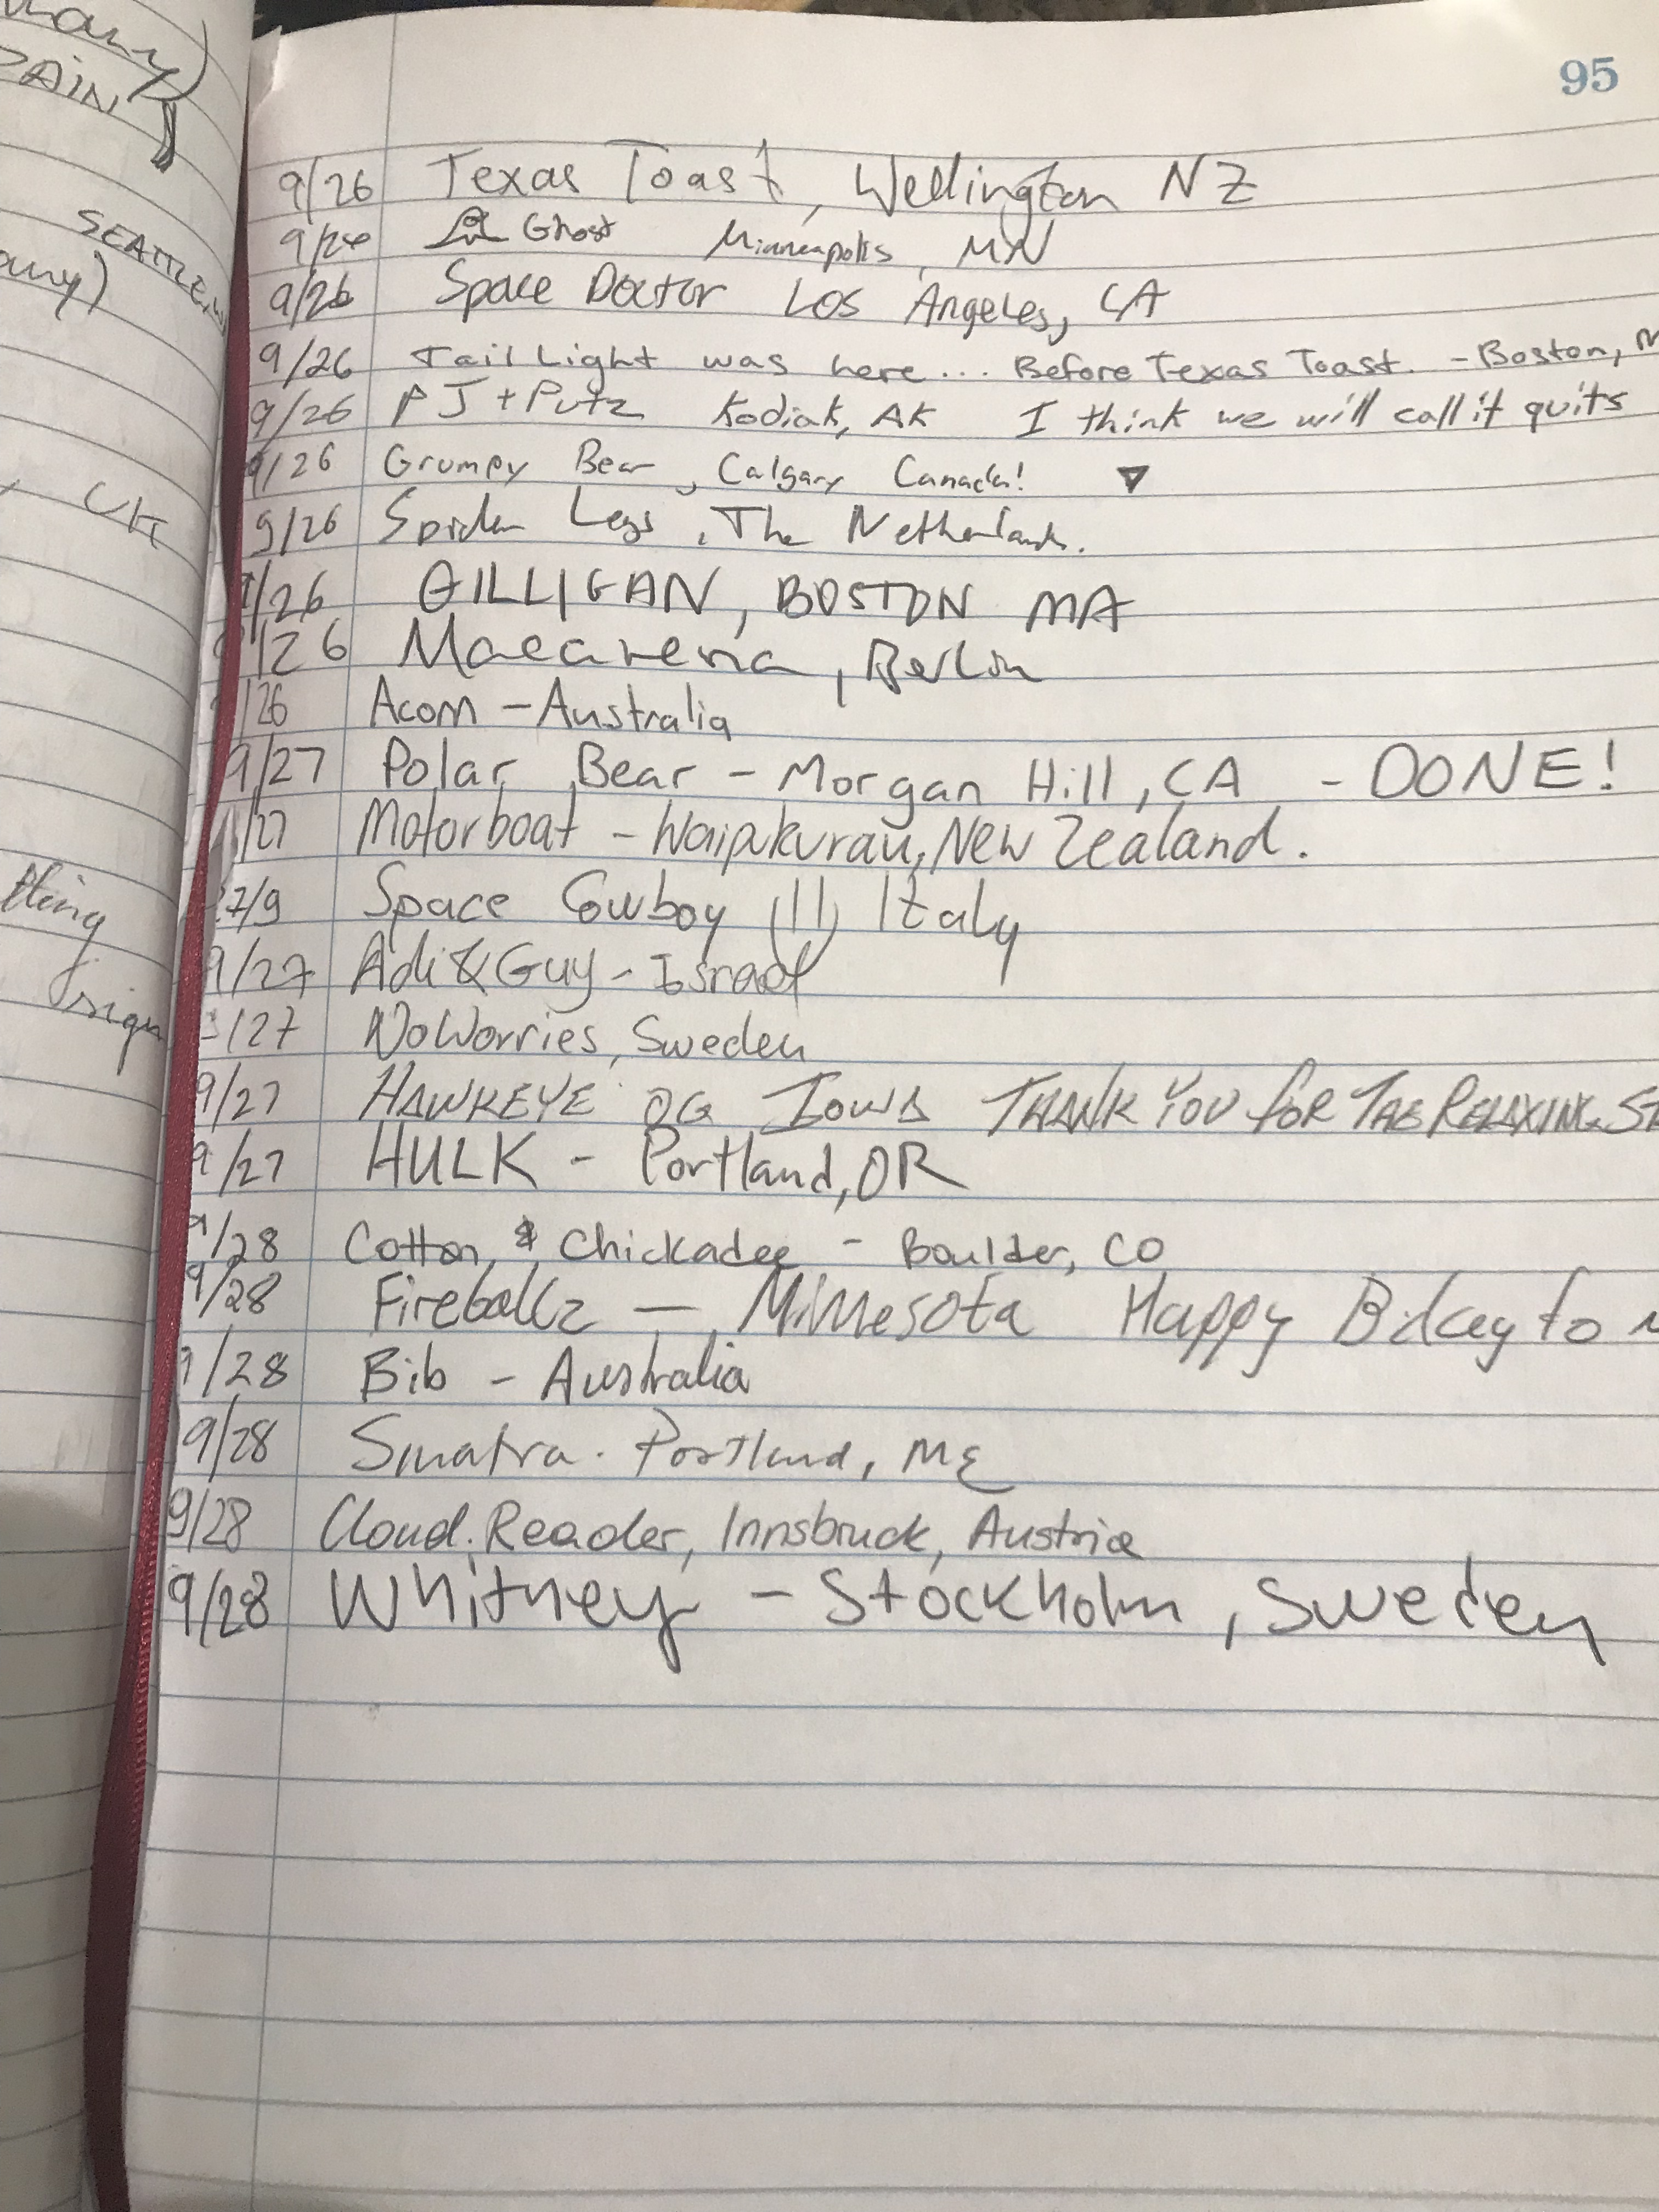 many)
ZAIN
SEATTLE, W
any)
, UK
thing
sign
95
9/26 Texas Toast, Wellington NZ
9/26 Ghost Minneapolis, MN
9/26 Space Doctor Los Angeles, CA
9/26 Tail Light was here... Before Texas Toast. - Boston, M
9/26 PJ + Putz Kodiak, AK I think we will call it quits
9/26 Grumpy Bear, Calgary Canada!
9/26 Spider Legs, The Netherlands.
9/26 GILLIGAN, BOSTON MA
/26 Macarena, Berlin
/26 Acorn - Australia
9/27 Polar Bear - Morgan Hill, CA - DONE!
/27 Motorboat - Waipukurau, New Zealand.
27/9 Space Cowboy (II) Italy
9/27 Adi & Guy - Israel
/27 NoWorries, Sweden
9/27 HAWKEYE OG IOWA THANK YOU FOR THE RELAXING ST
9/27 HULK - Portland, OR
9/28 Cotton & Chickadee - Boulder, CO
9/28 Fireballz - Minnesota Happy Bday to
9/28 Bib - Australia
9/28 Sinatra. Portland, ME
9/28 Cloud Reader, Innsbruck, Austria
9/28 Whitney - Stockholm, Sweden